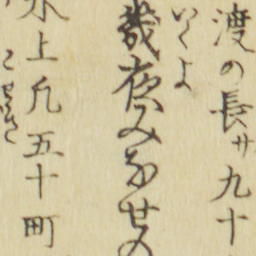 渡の長サ九十
いくよ
幾夜みなせの
水上凡五十町